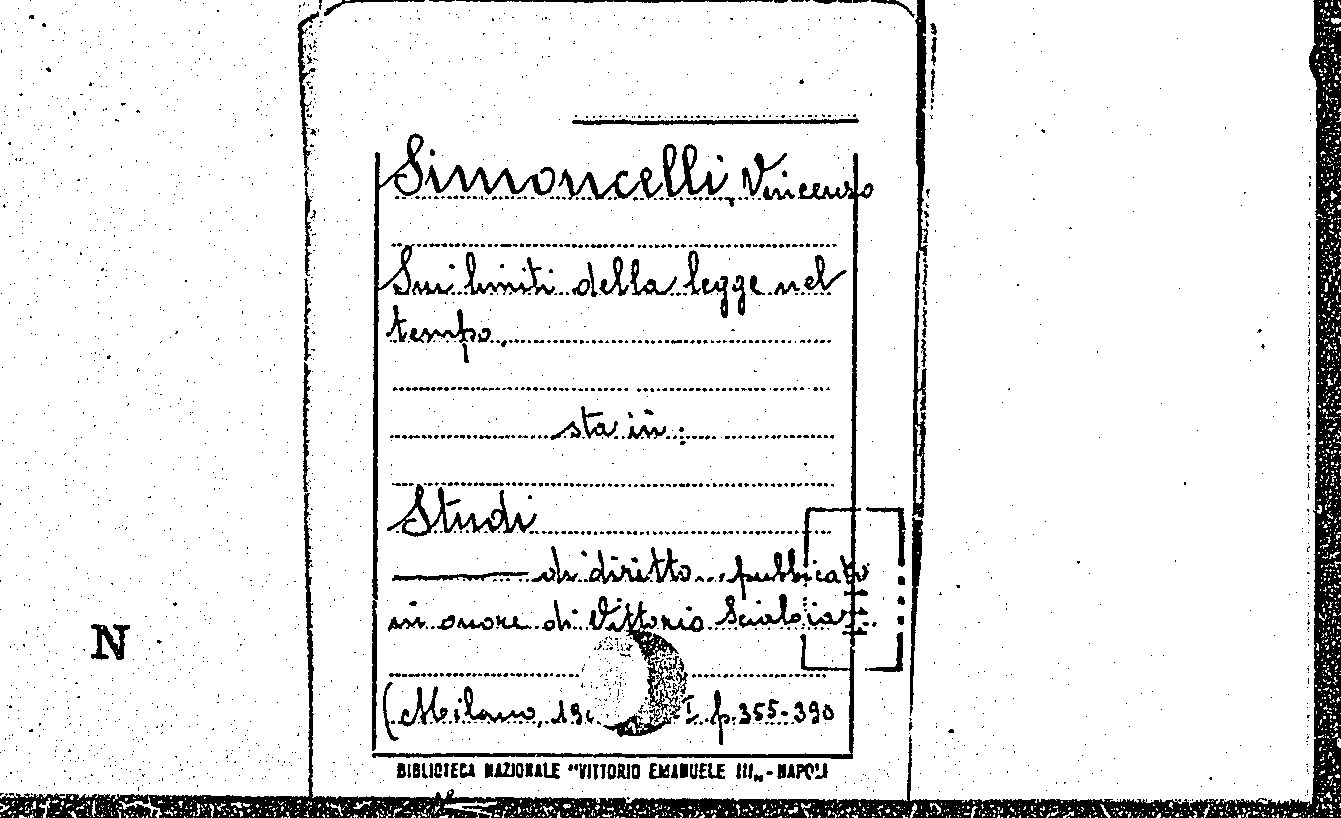 Simoncelli, Vincenzo
Sui limiti della legge nel
tempo.
sta in:
Studi
di diritto pubblicato
in onore di Vittorio Scialoia
N
(Milano, I p. 355-390
BIBLIOTECA NAZIONALE "VITTORIO EMANUELE III„ - NAPOLI